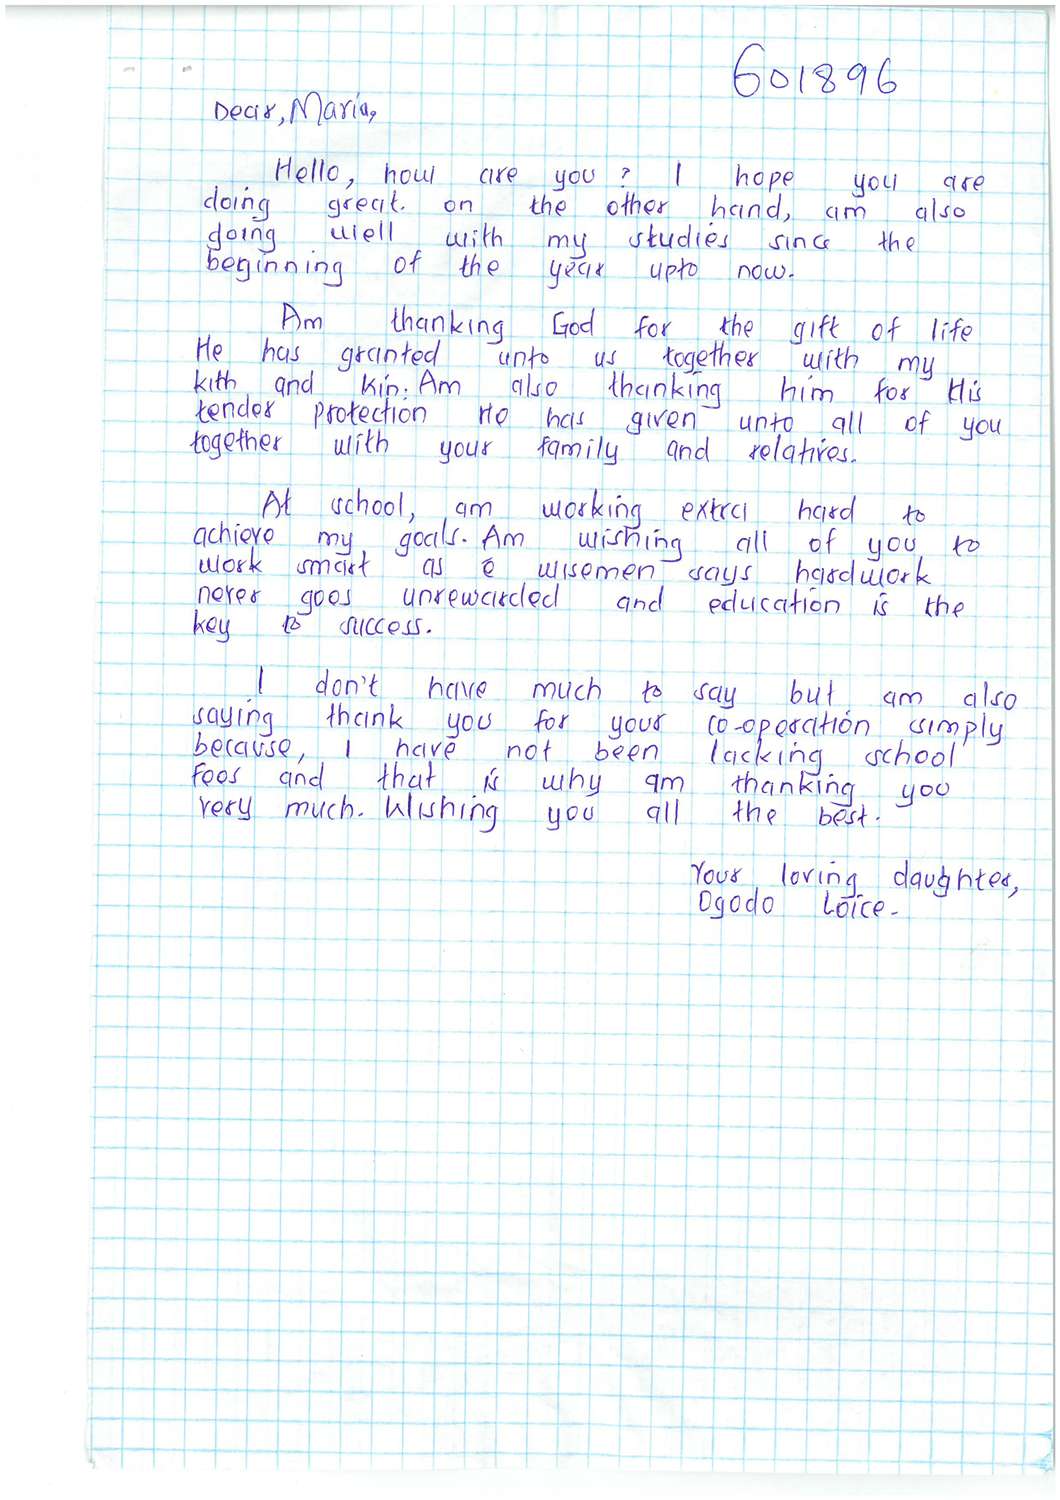 601896
Dear, Maria,
Hello, how are you ? I hope you are
doing great. on the other hand, am also
doing well with my studies since the
beginning of the year upto now.
Am thanking God for the gift of life
He has granted unto us together with my
kith and kin. Am also thanking him for His
tender protection He has given unto all of you
together with your family and relatives.
At school, am working extra hard to
achieve my goals. Am wishing all of you to
work smart as a wisemen says hardwork
never goes unrewarded and education is the
key to success.
I don't have much to say but am also
saying thank you for your co-operation simply
because, I have not been lacking school
fees and that is why am thanking you
very much. Wishing you all the best.
Your loving daughter,
Ogodo Loice.